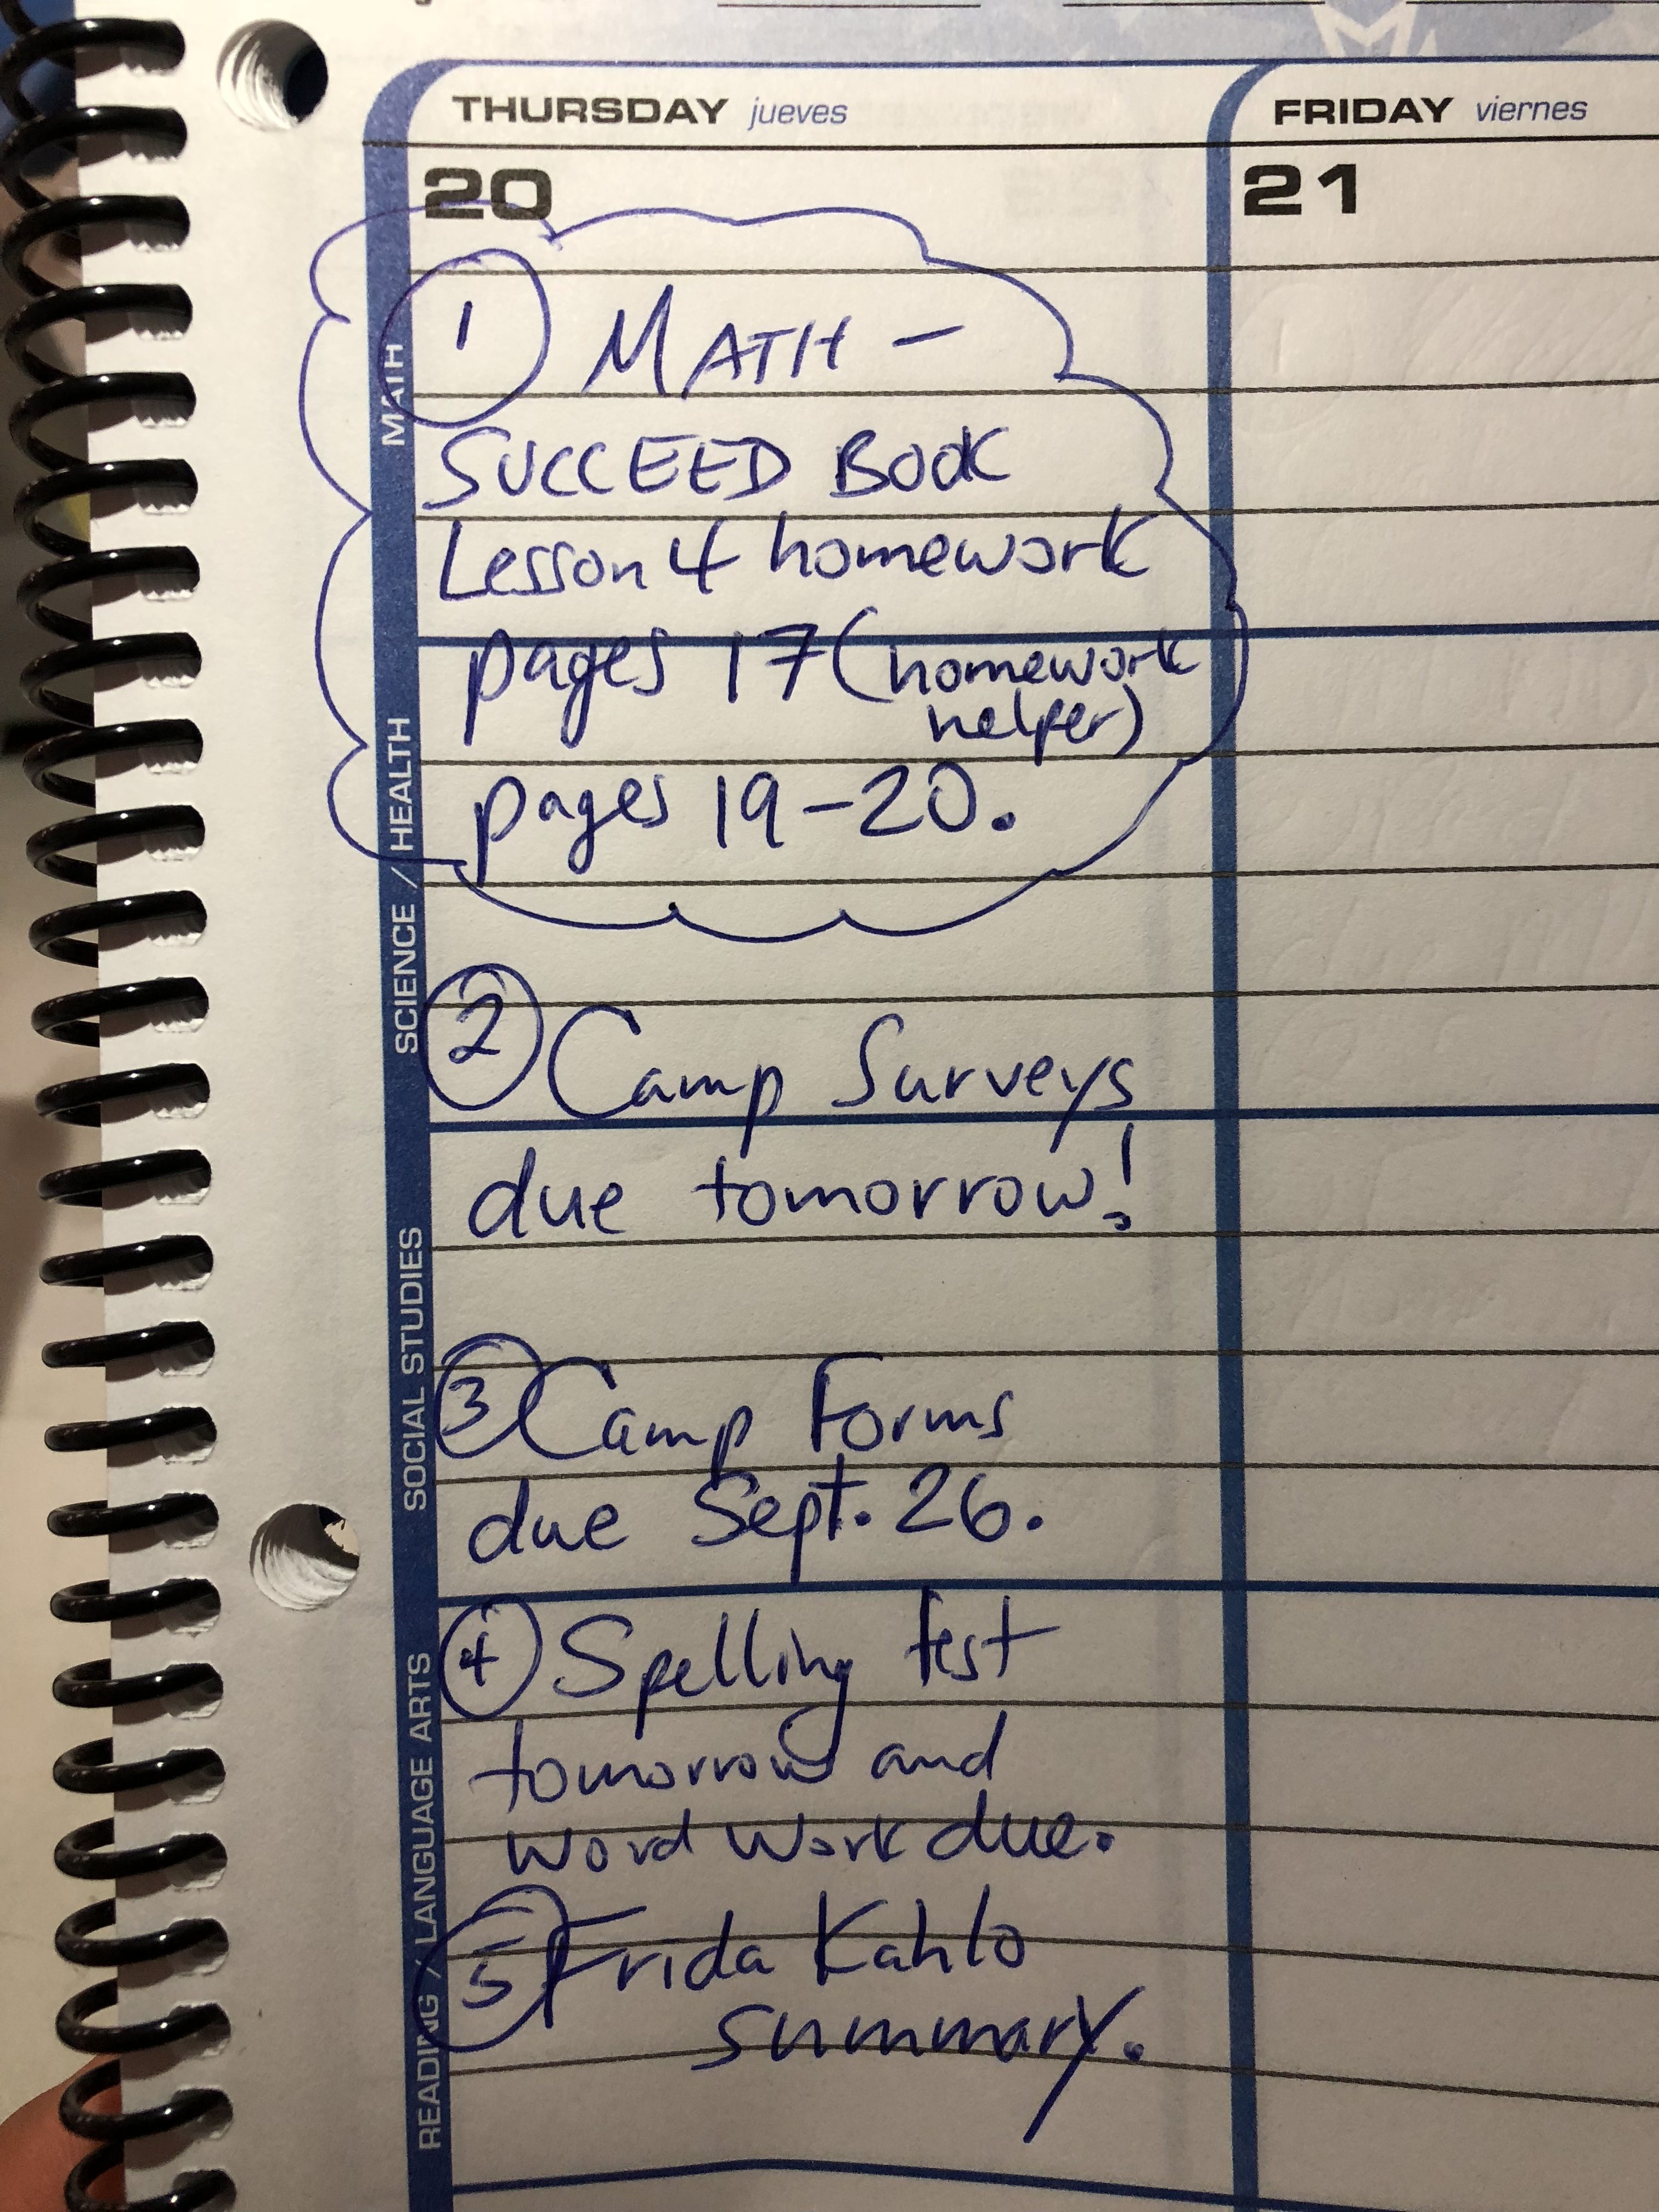 THURSDAY jueves
20
MATH
① MATH –
SUCCEED BOOK
Lesson 4 homework
pages 17 (homework
helper)
pages 19–20.
SCIENCE / HEALTH
② Camp Surveys
due tomorrow!
SOCIAL STUDIES
③ Camp Forms
due Sept. 26.
READING / LANGUAGE ARTS
④ Spelling test
tomorrow and
word work due.
⑤ Frida Kahlo
summary.
FRIDAY viernes
21